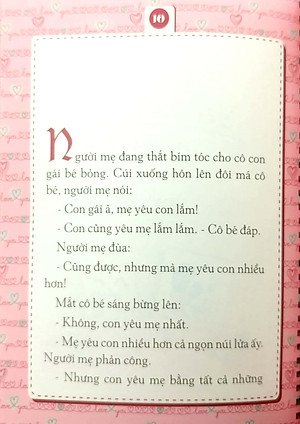 10
Người mẹ đang thắt bím tóc cho cô con
gái bé bỏng. Cúi xuống hôn lên đôi má cô
bé, người mẹ nói:
- Con gái ả, mẹ yêu con lắm!
- Con cũng yêu mẹ lắm lắm. - Cô bé đáp.
Người mẹ đùa:
- Cũng được, nhưng mà mẹ yêu con nhiều
hơn!
Mắt cô bé sáng bừng lên:
- Không, con yêu mẹ nhất.
- Mẹ yêu con nhiều hơn cả ngọn núi lửa ấy.
Người mẹ phản công.
- Nhưng con yêu mẹ bằng tất cả những